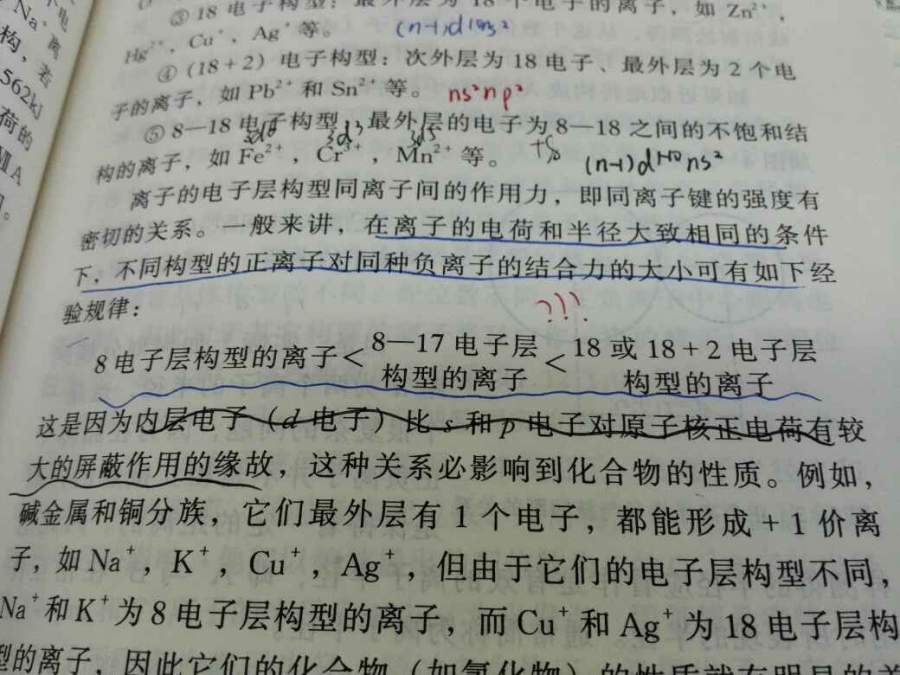 ③18 电子构型：最外层为 18 个电子的离子，如 Zn²⁺，
Hg²⁺，Cu⁺，Ag⁺ 等。 (n-1)d¹⁰ns²
④(18+2) 电子构型：次外层为 18 电子、最外层为 2 个电
子的离子，如 Pb²⁺ 和 Sn²⁺ 等。 ns²np²
⑤8—18 电子构型：最外层的电子为 8—18 之间的不饱和结
3d⁶ 3d³ 3d⁵
构的离子，如 Fe²⁺，Cr³⁺，Mn²⁺ 等。 (n-1)d¹⁻¹⁰ns²
离子的电子层构型同离子间的作用力，即同离子键的强度有
密切的关系。一般来讲，在离子的电荷和半径大致相同的条件
下，不同构型的正离子对同种负离子的结合力的大小可有如下经
验规律：
???
8 电子层构型的离子＜8—17 电子层构型的离子＜18 或 18+2 电子层构型的离子
这是因为内层电子（d 电子）比 s 和 p 电子对原子核正电荷有较
大的屏蔽作用的缘故，这种关系必影响到化合物的性质。例如，
碱金属和铜分族，它们最外层有 1 个电子，都能形成 +1 价离
子，如 Na⁺，K⁺，Cu⁺，Ag⁺，但由于它们的电子层构型不同，
Na⁺和K⁺为8电子层构型的离子，而Cu⁺和 Ag⁺为18电子层构
型的离子，因此它们的化合物（如氯化物）的性质就有明显的差
Na⁺
构，若
562kJ
荷的
ⅡA